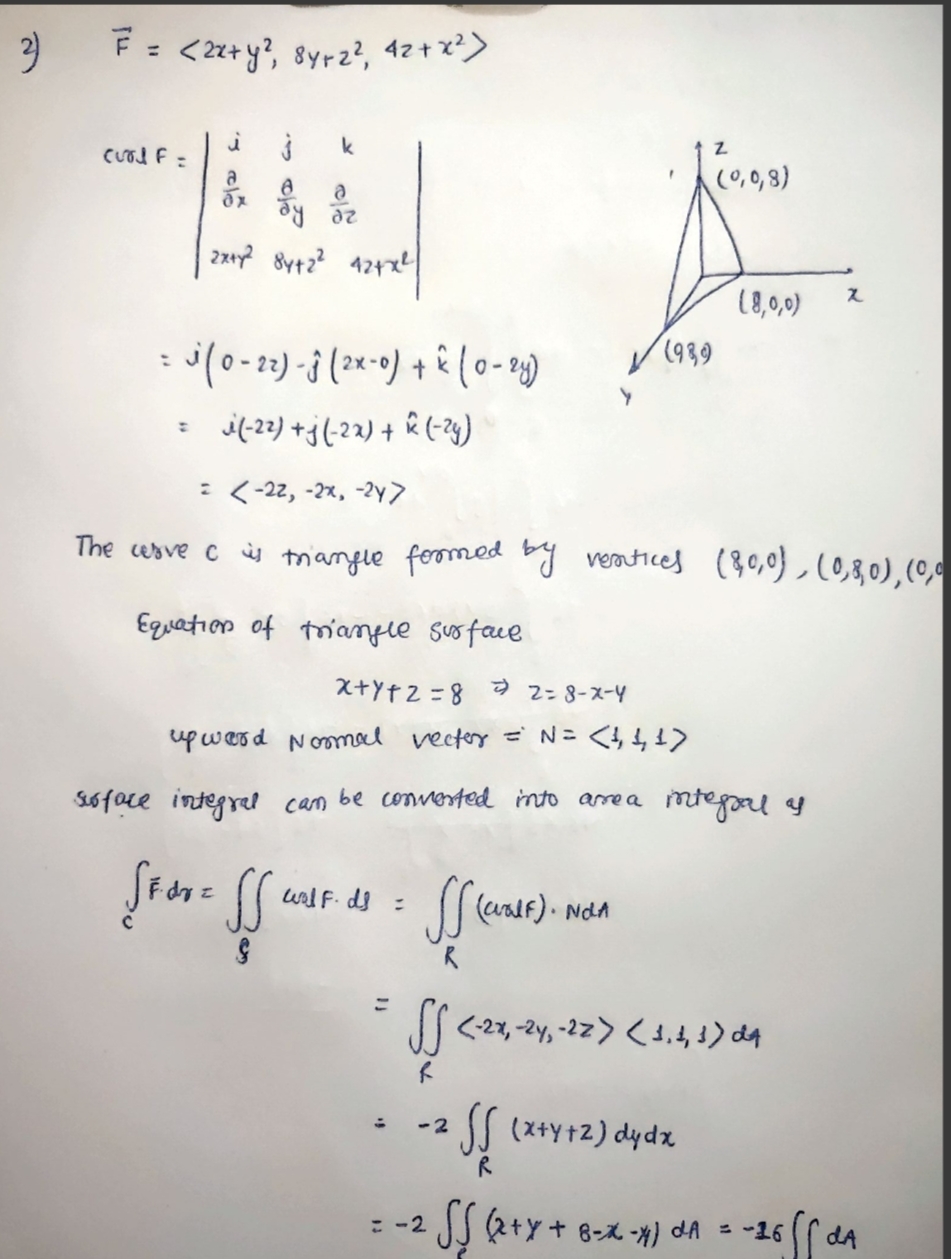 2) F⃗ = <2x+y², 8y+z², 4z+x²>
curl F = | i j k |
| ∂/∂x ∂/∂y ∂/∂z |
| 2x+y² 8y+z² 4z+x² |
z
(0,0,8)
(8,0,0) x
(0,8,0)
y
= i(0-2z) - ĵ(2x-0) + k̂(0-2y)
= i(-2z) + j(-2x) + k̂(-2y)
= <-2z, -2x, -2y>
The curve c is triangle formed by vertices (8,0,0), (0,8,0), (0,0
Equation of triangle surface
x+y+z = 8 ⇒ z = 8-x-y
upward Normal vector = N = <1, 1, 1>
surface integral can be converted into area integral as
∫_C F⃗.dr = ∬_S curl F. ds = ∬_R (curl F). N dA
= ∬_R <-2x, -2y, -2z> <1,1,1> dA
= -2 ∬_R (x+y+z) dy dx
= -2 ∬ (x+y+8-x-y) dA = -16 ∬ dA